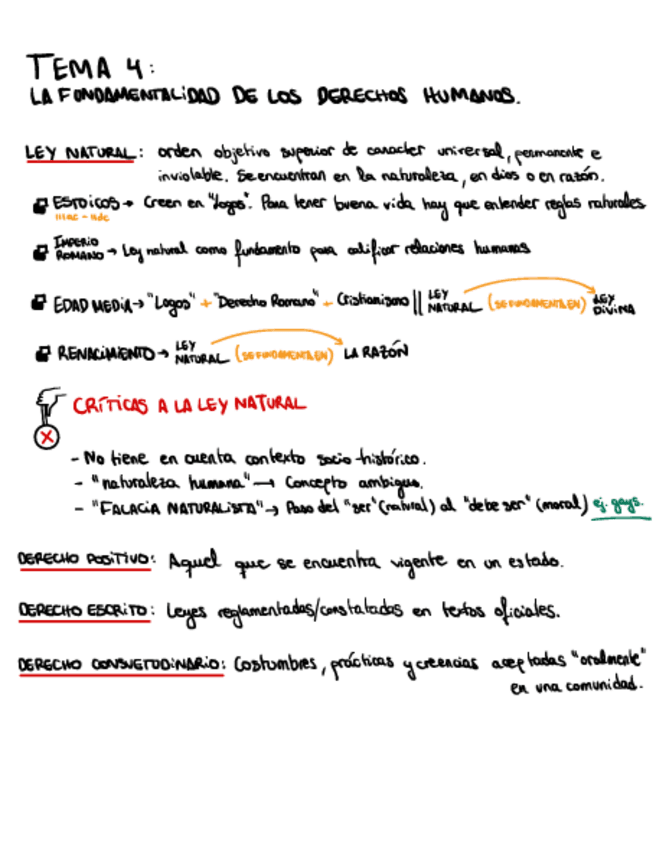 TEMA 4:
LA FUNDAMENTALIDAD DE LOS DERECHOS HUMANOS.
LEY NATURAL: orden objetivo superior de caracter universal, permanente e
inviolable. Se encuentran en la naturaleza, en dios o en razón.
ESTOICOS → Creen en "logos". Para tener buena vida hay que entender reglas naturales
IIIac - IIdc
IMPERIO ROMANO → Ley natural como fundamento para calificar relaciones humanas
EDAD MEDIA → "Logos" + "Derecho Romano" - Cristianismo || LEY NATURAL (SE FUNDAMENTA EN) LEY DIVINA
RENACIMIENTO → LEY NATURAL (SE FUNDAMENTA EN) LA RAZÓN
CRÍTICAS A LA LEY NATURAL
- No tiene en cuenta contexto socio-histórico.
- "naturaleza humana" → Concepto ambiguo.
- "FALACIA NATURALISTA" → Paso del "ser" (natural) al "debe ser" (moral) ej. gays.
DERECHO POSITIVO: Aquel que se encuentra vigente en un estado.
DERECHO ESCRITO: Leyes reglamentadas/constatadas en textos oficiales.
DERECHO CONSUETUDINARIO: Costumbres, prácticas y creencias aceptadas "oralmente"
en una comunidad.